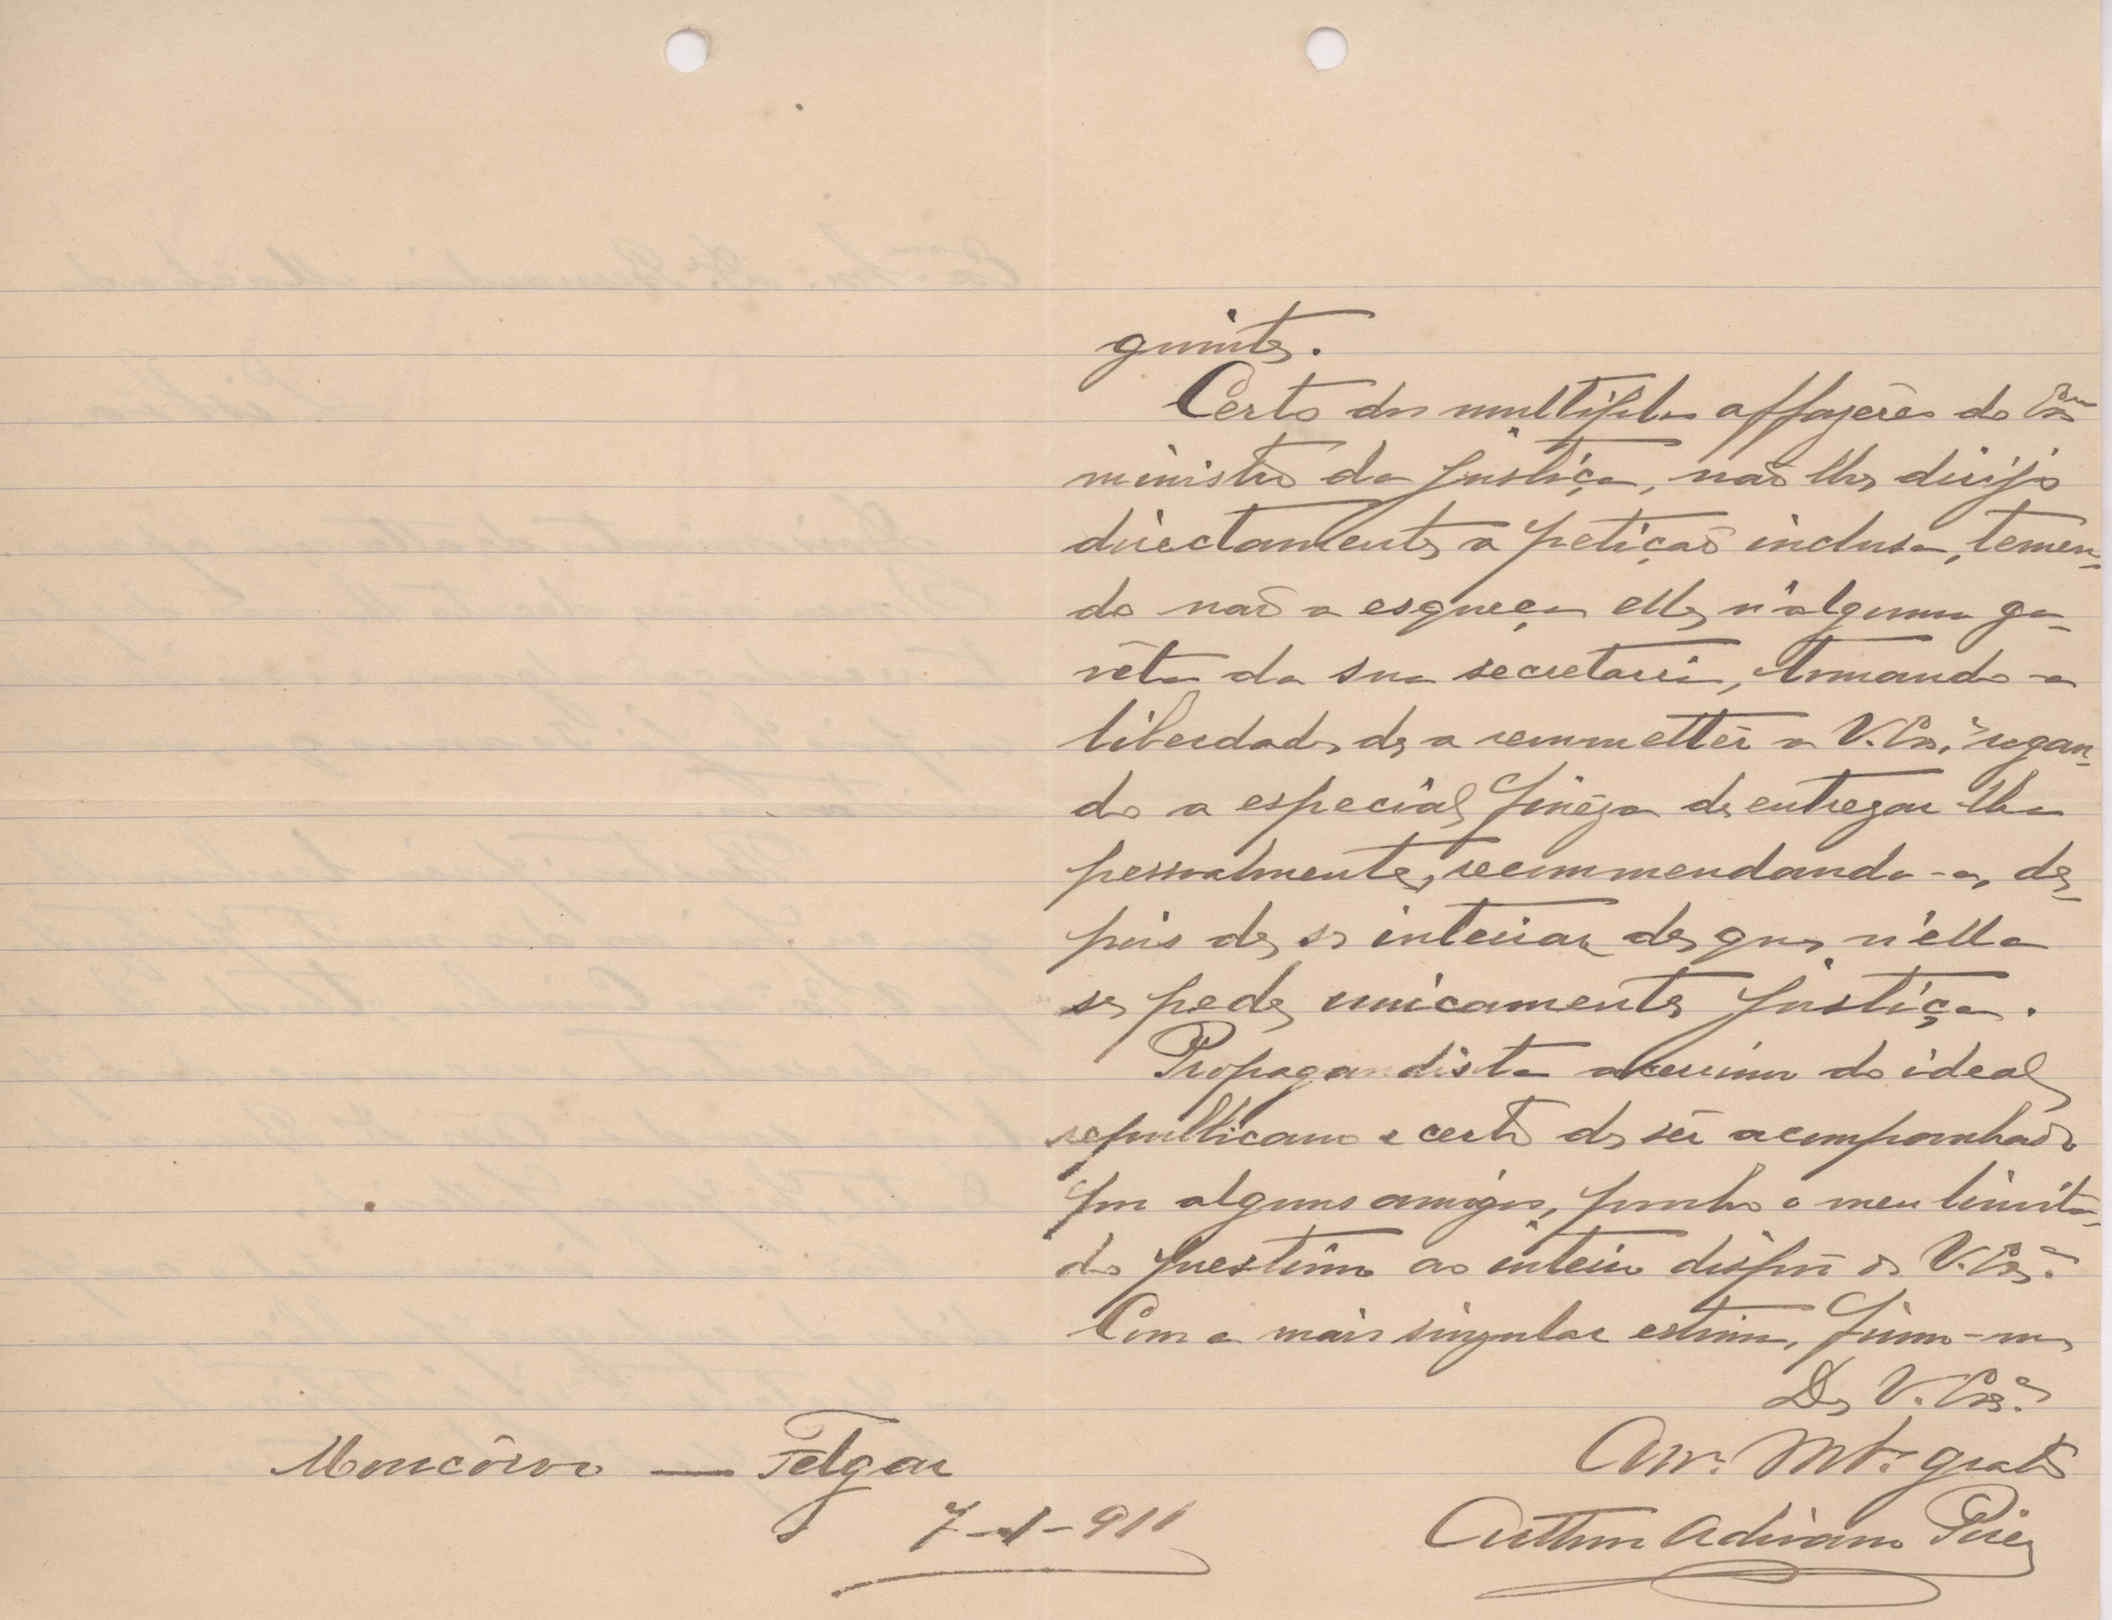 guintes.
Certo dos multiplos affazeres do Exmo
ministro da justiça, não lhe dirijo
directamente a petição inclusa, temen-
do não a esqueça elle n'alguma ga-
vêta da sua secretaria, tomando a
liberdade de a remmettêr a V. Exª, rogan-
do a especial finêza de entregar-lha
pessoalmente, recommendando-a, de-
pois de se inteirar de que n'ella
se pede unicamente justiça.
Propagandista acerrimo do ideal
republicano e certo de sêr acompanhado
por alguns amigos, ponho o meu limita-
do prestimo ao inteiro dispôr de V. Exª.
Com a mais singular estima, firmo-me
De V. Exª.
Amº. Mtº. grato
Arthur Adriano Pires
Moncôrvo — Felgar
7-1-911